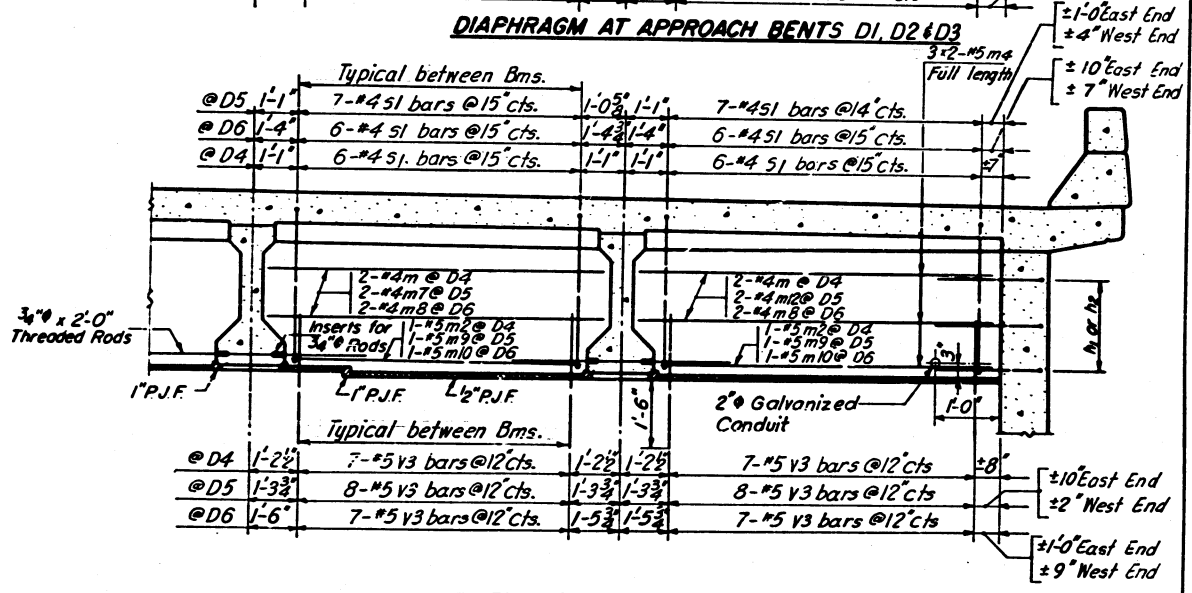 DIAPHRAGM AT APPROACH BENTS D1, D2 & D3
±1'-0" East End
±4" West End
3x2-#5 m4
Full length
±10" East End
±7" West End
Typical between Bms.
@D5 1'-1" 7-#4 S1 bars @15" cts. 1'-0 5/8" 1'-1" 7-#4 S1 bars @14" cts.
@D6 1'-4" 6-#4 S1 bars @15" cts. 1'-4 3/4" 1'-4" 6-#4 S1 bars @15" cts.
@D4 1'-1" 6-#4 S1. bars @15" cts. 1'-1" 1'-1" 6-#4 S1 bars @15" cts. ±7"
2-#4m @ D4
2-#4m7@ D5
2-#4m8@ D6
2-#4m @ D4
2-#4m12@ D5
2-#4m8@ D6
3/4"Φ x 2'-0"
Threaded Rods
Inserts for
3/4"Φ Rods
1-#5m2@ D4
1-#5m9@ D5
1-#5m10@ D6
1-#5m2@ D4
1-#5m9@ D5
1-#5m10@ D6
h1 or h2
3"
1" P.J.F.
1" P.J.F.
1/2" P.J.F.
1'-6"
2"Φ Galvanized
Conduit
1'-0"
Typical between Bms.
@D4 1'-2 1/2" 7-#5 v3 bars @12" cts. 1'-2 1/2" 1'-2 1/2" 7-#5 v3 bars @12" cts ±8"
@D5 1'-3 3/4" 8-#5 v3 bars @12" cts. 1'-3 3/4" 1'-3 3/4" 8-#5 v3 bars @12" cts
@D6 1'-6" 7-#5 v3 bars @12" cts. 1'-5 3/4" 1'-5 3/4" 7-#5 v3 bars @12" cts
±10" East End
±2" West End
±1'-0" East End
±9" West End